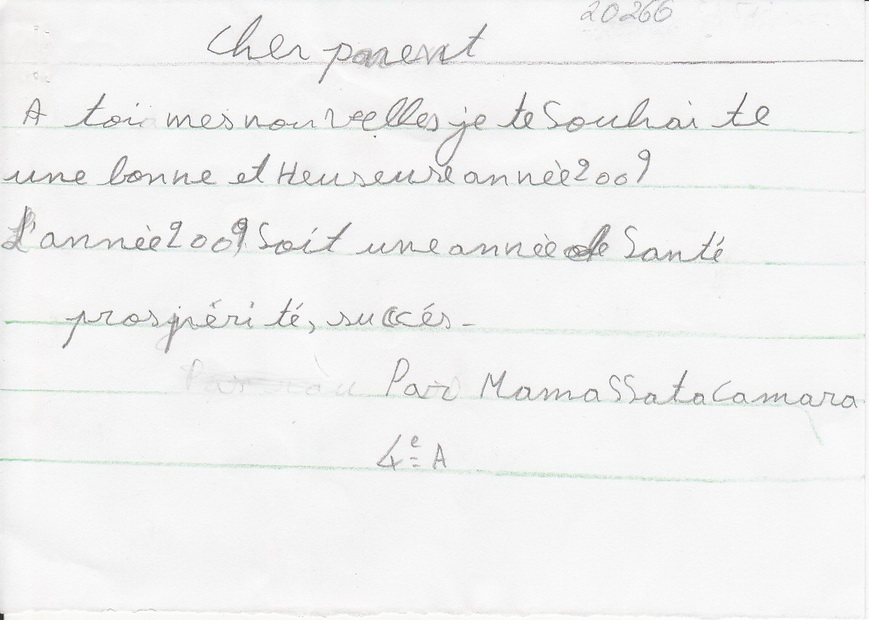 20266
Cher parent
A toi mes nouvelles je te Souhaite
une bonne et Heuseure annèe 2009
L'annèe 2009 Soit une annèe de Santé
prospérité, succés-
Par MamaSSata Camara
4e A